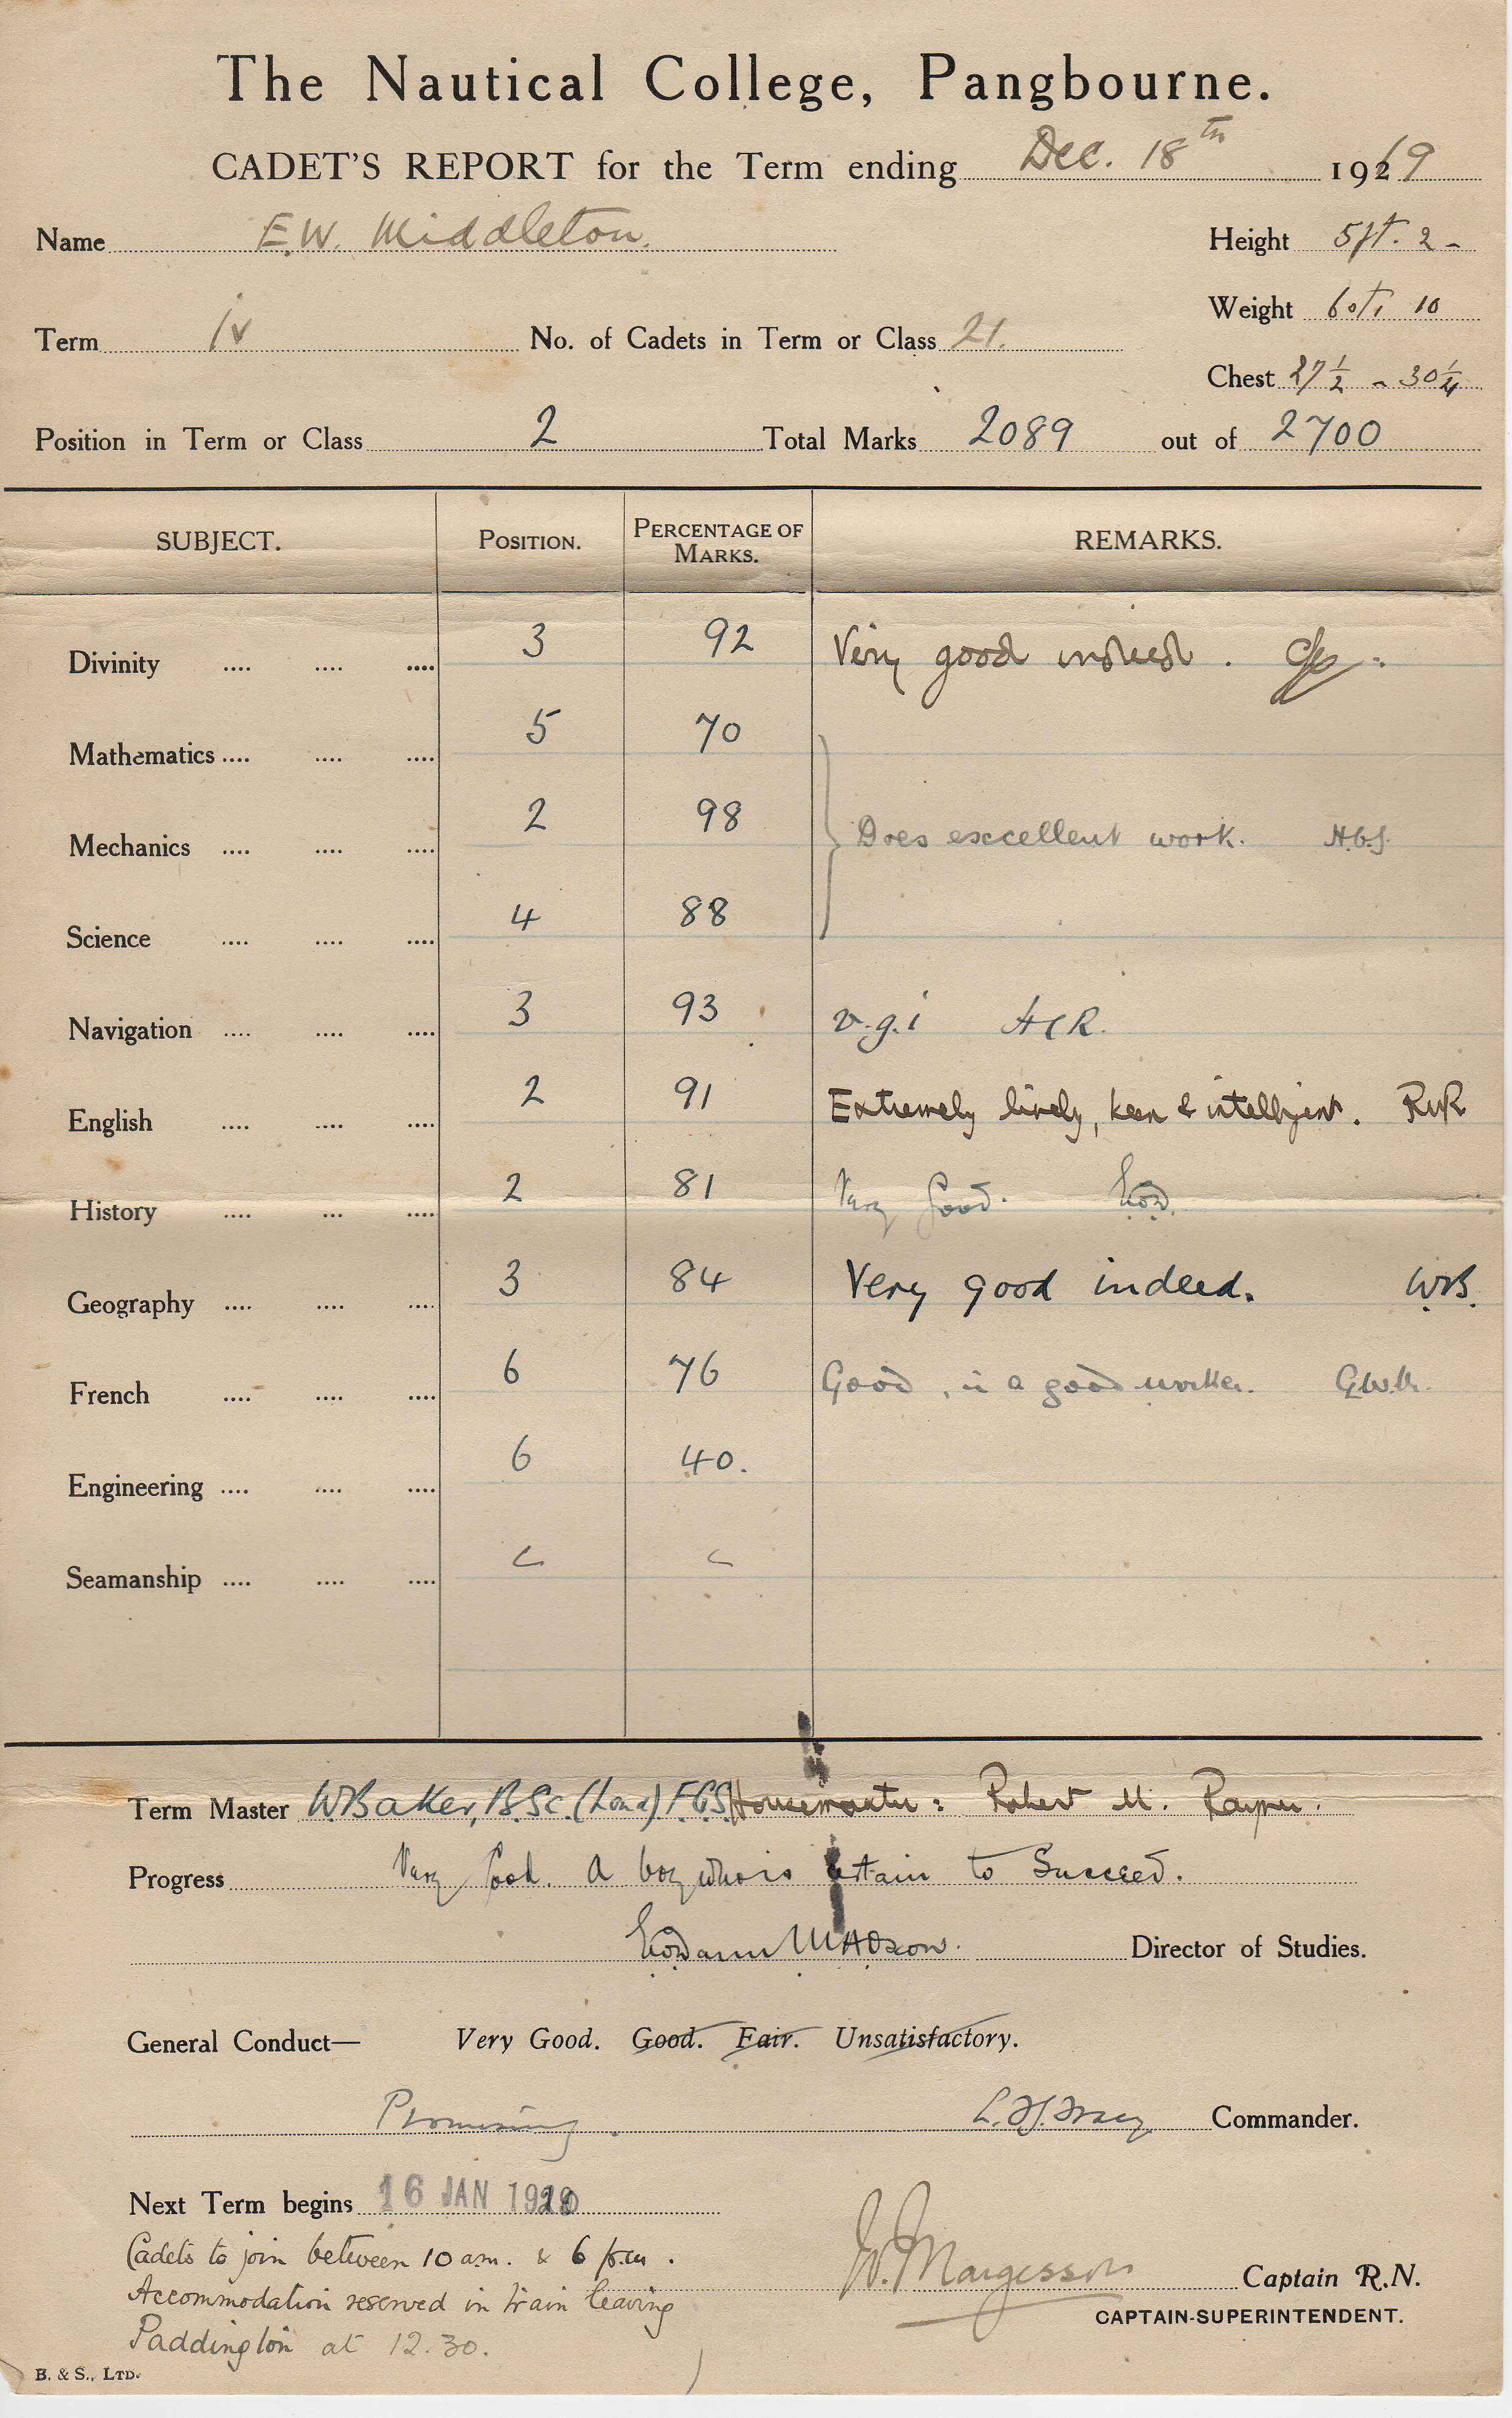 The Nautical College, Pangbourne.
CADET'S REPORT for the Term ending Dec. 18th 1919
Name E.W. Middleton. Height 5ft. 2 -
Weight 6st. 10
Term iv No. of Cadets in Term or Class 21.
Chest 27½ - 30¼
Position in Term or Class 2 Total Marks 2089 out of 2700
SUBJECT. POSITION. PERCENTAGE OF MARKS. REMARKS.
Divinity .... .... .... 3 92 Very good indeed.
Mathematics .... .... .... 5 70
Mechanics .... .... .... 2 98 Does excellent work. H.G.S.
Science .... .... .... 4 88
Navigation .... .... .... 3 93 v.g.i HCR.
English .... .... .... 2 91 Extremely lively, keen & intelligent. RMR
History .... ... .... 2 81 Very Good.
Geography .... .... .... 3 84 Very good indeed. WB.
French .... .... .... 6 76 Good, is a good worker.
Engineering .... .... .... 6 40.
Seamanship .... .... ....
Term Master W Baker, B.Sc. (Lond) F.G.S. Housemaster: Robert M. Rayner.
Progress Very Good. A boy who is certain to Succeed.
Director of Studies.
General Conduct— Very Good. Good. Fair. Unsatisfactory.
Promising. Commander.
Next Term begins 16 JAN 1920
Cadets to join between 10 a.m. & 6 p.m.
W. Margesson Captain R.N.
Accommodation reserved in train leaving
CAPTAIN-SUPERINTENDENT.
Paddington at 12.30.
B. & S., LTD.